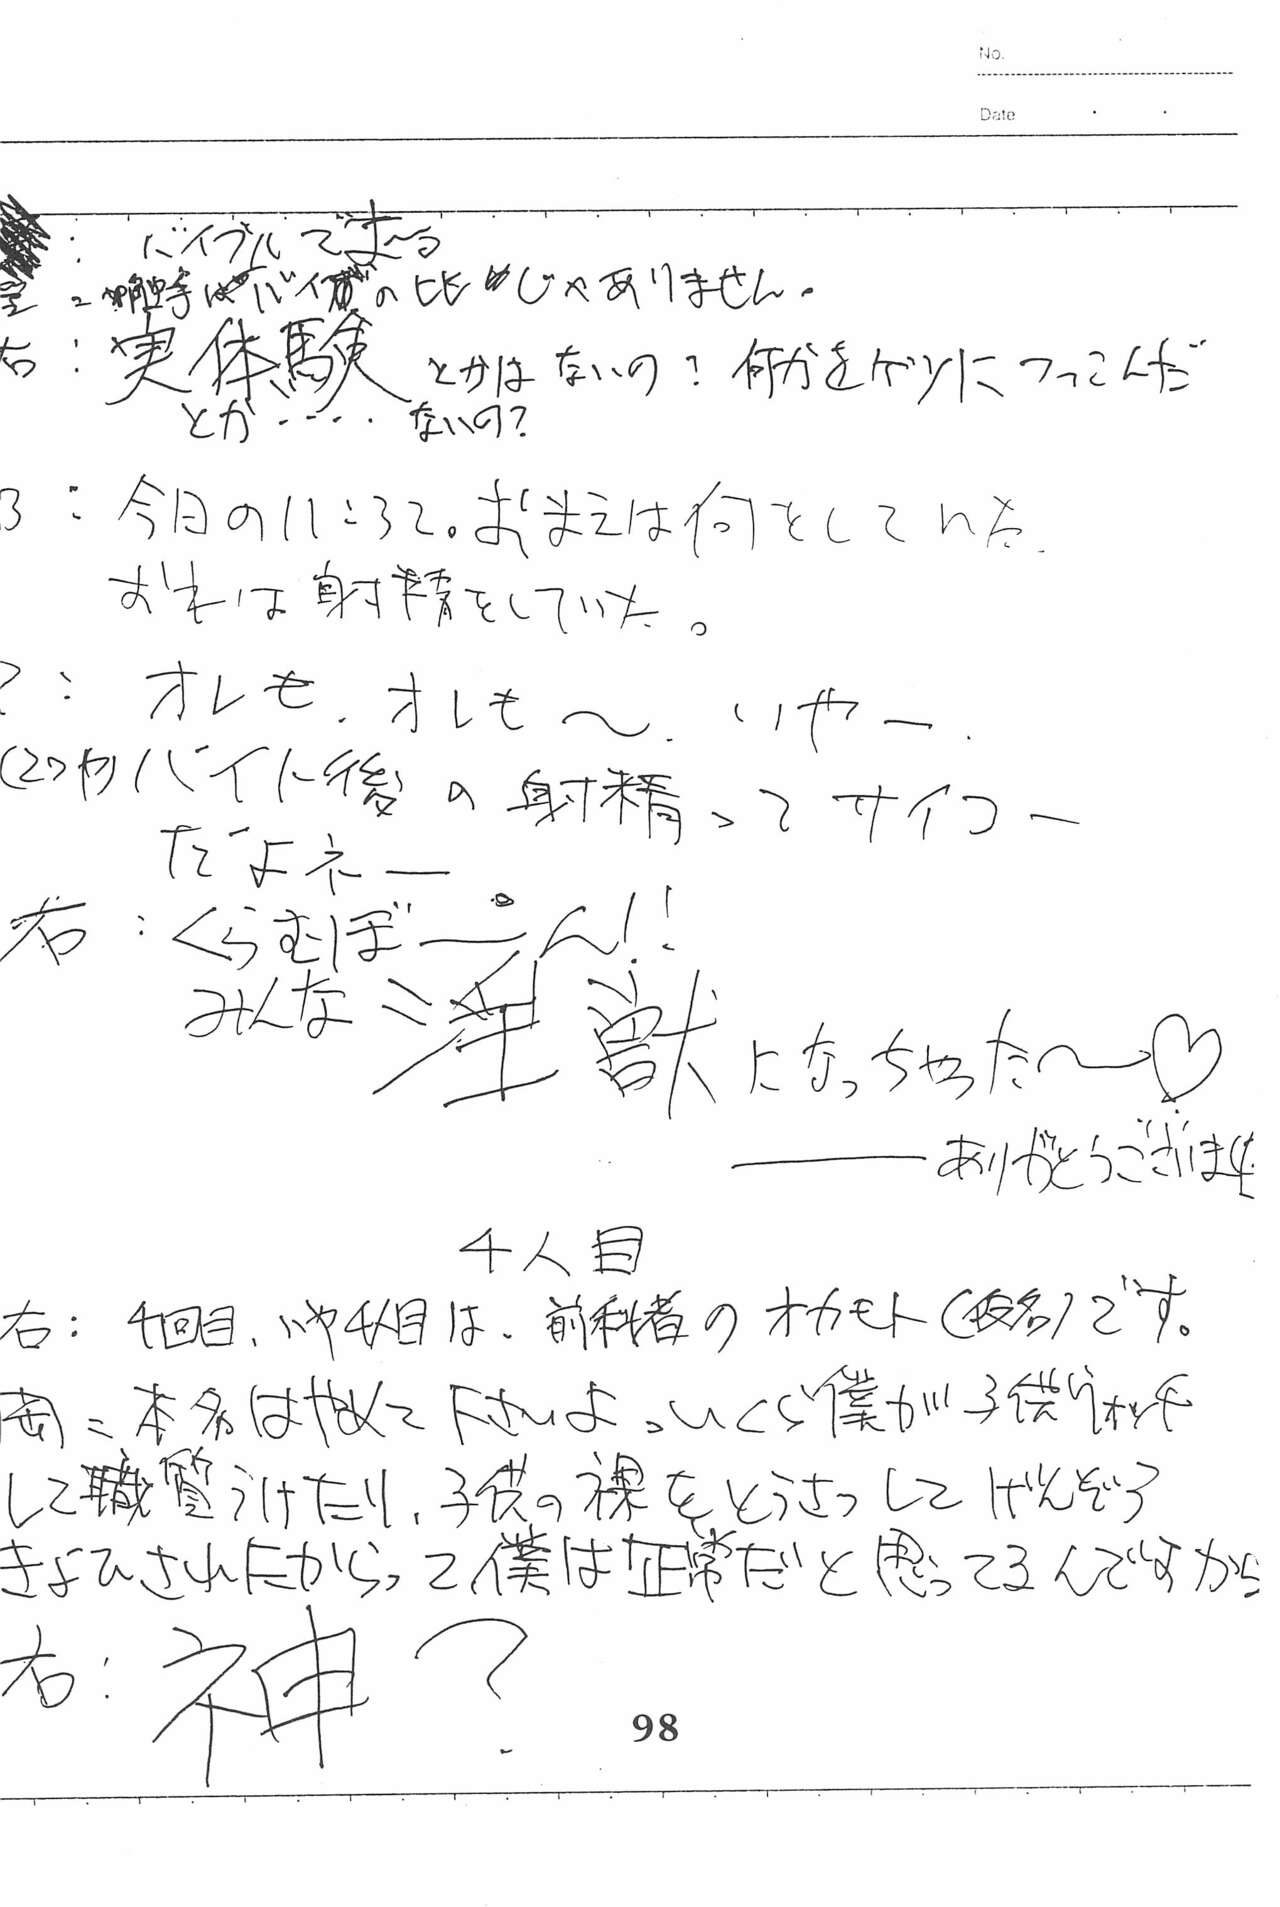 No.
Date
: バイブルで す〜る
室: 触手はバイブの比じゃありません。
右: 実体験とかはないの? 何かをゲリにつっこんだ
とか・・・・ ないの?
B: 今日の11ころて。おまえは何をしていた
おれは射精をしていた。
?: オレも、オレも〜、いやー、
バイト後の射精ってサイコー
だよネー
右: くらむぼーん!!
みんな淫獣になっちゃった〜♡
ありがとうございま
4人目
右: 4回目、いや4人目は、前科者のオカモト(仮名)です。
岡: 本名はやめて下さいよ。いくら僕が子供ウォッチ
して職質うけたり、子供の裸をとうさつしてげんぞう
きょひされたからって僕は正常だと思ってるんですから
右: 神?
98